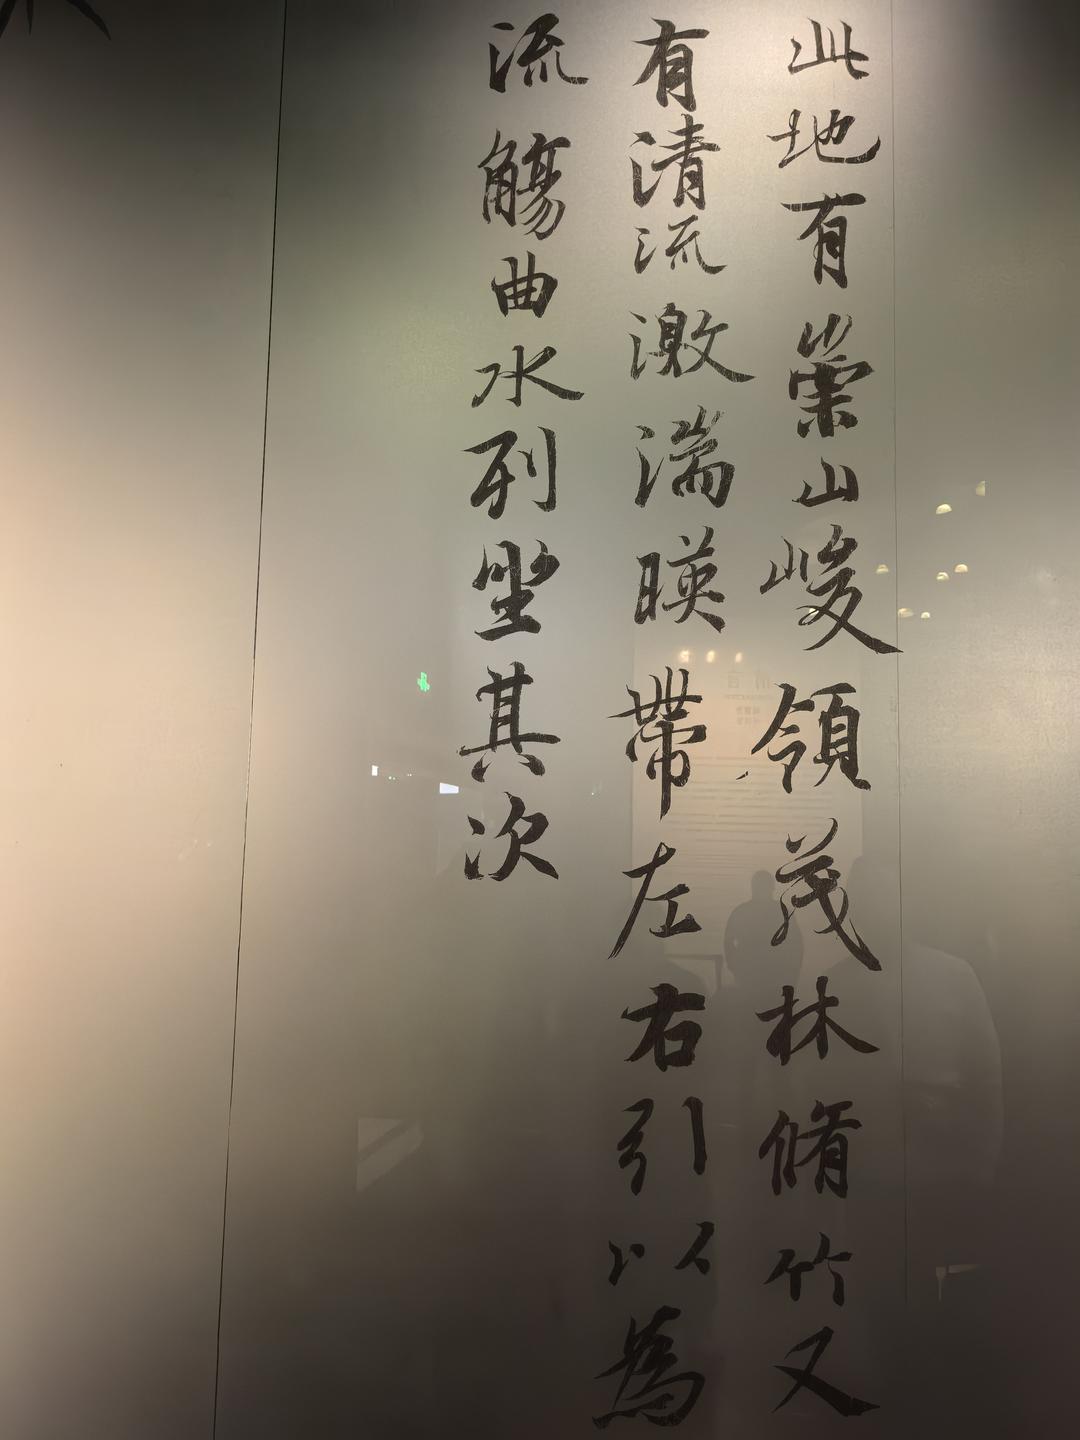 此地有崇山峻領茂林脩竹又
有清流激湍暎帶左右引以為
流觴曲水列坐其次